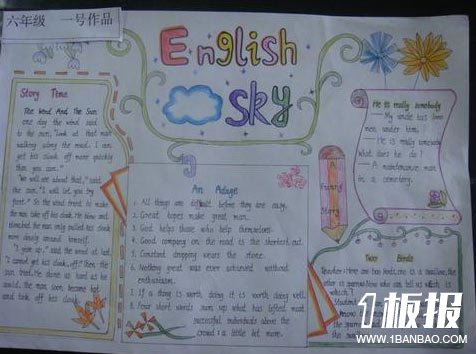 六年级 一号作品
English
Sky
Story Time
The Wind And The Sun
one day the wind said
to the sun, "Look at that man
walking along the road. I can
get his cloak off more quickly
than you can."
"We will see about that," said
the sun. "I will let you try
first." So the wind tried to make
the man take off his cloak. He blew and
blew, but the man only pulled his cloak
more closely around himself.
"I give up," said the wind at last
"I cannot get his cloak off." Then the
Sun tried. He shone as hard as he
could. The man soon became hot
and took off his cloak.
An Adage
1. All things are difficult before they are easy.
2. Great hopes make great man.
3. God helps those who help themselves.
4. Good company on the road is the shortest cut.
5. Constant dropping wears the stone.
6. Nothing great was ever achieved without
enthusiasm.
7. If a thing is worth doing it is worth doing well.
8. Four short words sum up what has lifted most
successful individuals above the
crowd: a little bit more.
A
Funny
Story
He is really somebody
— My uncle has 1000
men under him.
— He is really somebody.
What does he do?
— A maintenance man
in a cemetery.
Two Birds
Teacher: Here are two birds, one is a swallow, the
other is sparrow. Now who can tell us which is
which?
1板报
WWW.1BANBAO.COM